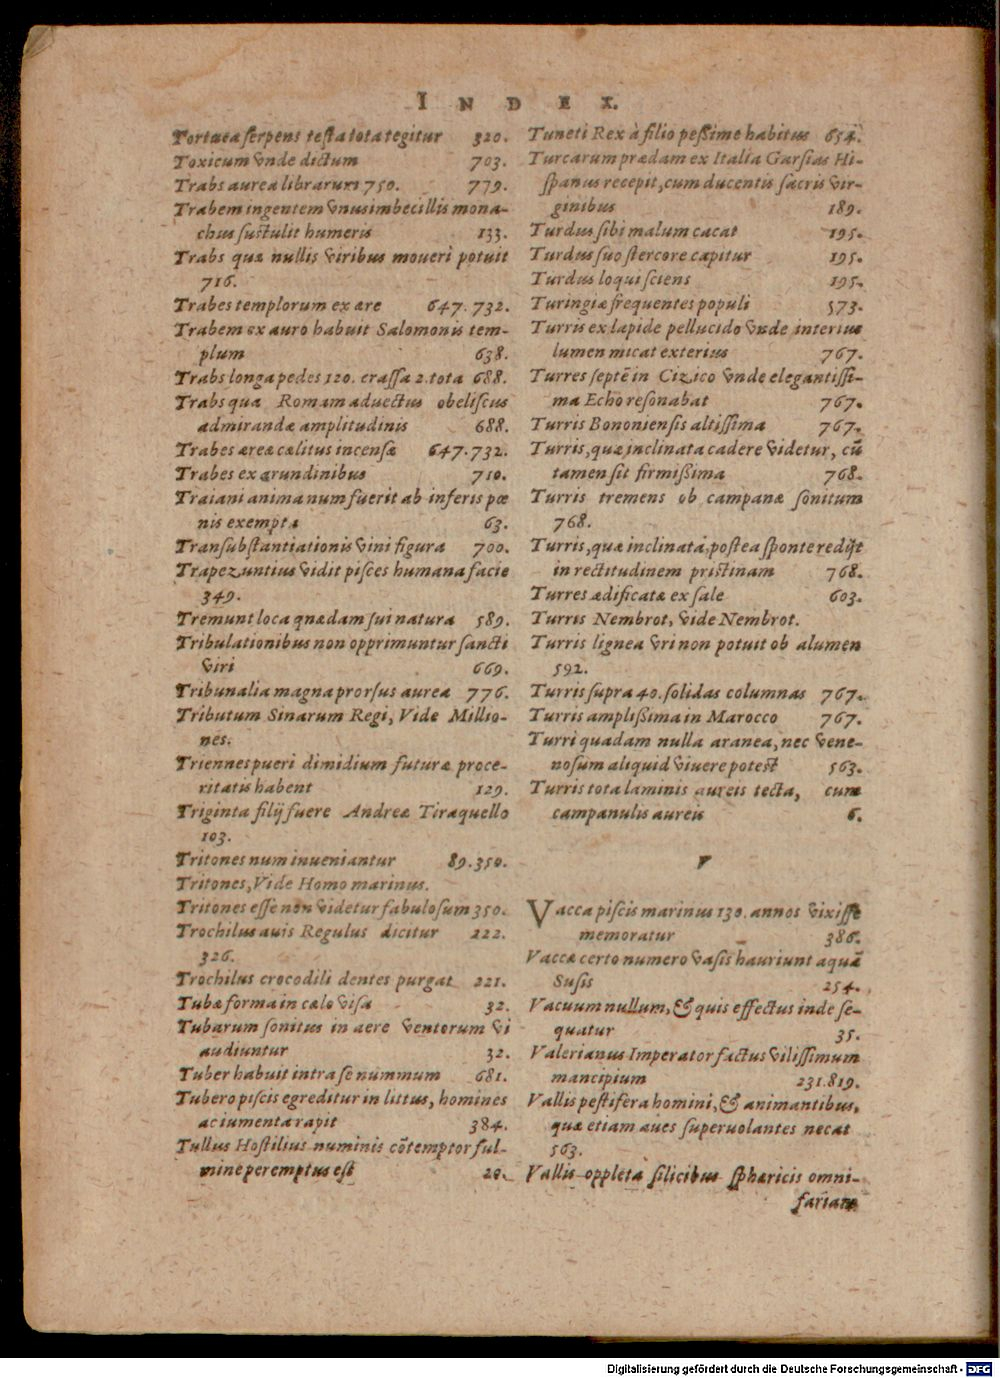 INDEX.
Tortuca serpens testa tota tegitur 320.
Toxicum vnde dictum 703.
Trabs aurea librarum 750. 779.
Trabem ingentem vnus imbecillis mona-
chus sustulit humeris 133.
Trabs quæ nullis viribus moueri potuit
716.
Trabes templorum ex ære 647.732.
Trabem ex auro habuit Salomonis tem-
plum 638.
Trabs longa pedes 120. crassa 2. tota 688.
Trabs qua Romam aduectus obeliscus
admirandæ amplitudinis 688.
Trabes æreæ cælitus incensæ 647.732.
Trabes ex arundinibus 710.
Traiani anima num fuerit ab inferis pœ
nis exempta 63.
Transubstantiationis vini figura 700.
Trapezuntius vidit pisces humana facie
349.
Tremunt loca quædam sui natura 589.
Tribulationibus non opprimuntur sancti
viri 669.
Tribunalia magna prorsus aurea 776.
Tributum Sinarum Regi, Vide Millio-
nes.
Triennes pueri dimidium futuræ proce-
ritatis habent 129.
Triginta filij fuere Andreæ Tiraquello
103.
Tritones num inueniantur 89.350.
Tritones, Vide Homo marinus.
Tritones esse non videtur fabulosum 350.
Trochilus auis Regulus dicitur 222.
326.
Trochilus crocodili dentes purgat 221.
Tubæ forma in cælo visa 32.
Tubarum sonitus in aere ventorum vi
audiuntur 32.
Tuber habuit intra se nummum 681.
Tubero piscis egreditur in littus, homines
ac iumenta rapit 384.
Tullus Hostilius numinis cõtemptor ful-
mine peremptus est 20.
Tuneti Rex à filio peßime habitus 654.
Turcarum prædam ex Italia Garsias Hi-
spanus recepit, cum ducentis sacris vir-
ginibus 189.
Turdus sibi malum cacat 195.
Turdus suo stercore capitur 195.
Turdus loqui sciens 195.
Turingiæ frequentes populi 573.
Turris ex lapide pellucido vnde interius
lumen micat exterius 767.
Turres septẽ in Cizico vnde elegantissi-
ma Echo resonabat 767.
Turris Bononiensis altissima 767.
Turris, quæ inclinata cadere videtur, cũ
tamen sit firmißima 768.
Turris tremens ob campanæ sonitum
768.
Turris, quæ inclinata, postea sponte redijt
in rectitudinem pristinam 768.
Turres ædificatæ ex sale 603.
Turris Nembrot, vide Nembrot.
Turris lignea vri non potuit ob alumen
592.
Turris supra 40. solidas columnas 767.
Turris amplißima in Marocco 767.
Turri quadam nulla aranea, nec vene-
nosum aliquid viuere potest 563.
Turris tota laminis aureis tecta, cum
campanulis aureis 6.
V
Vacca piscis marinus 130. annos vixisse
memoratur 386.
Vaccæ certo numero vasis hauriunt aquã
Susis 254.
Vacuum nullum, & quis effectus inde se-
quatur 35.
Valerianus Imperator factus vilissimum
mancipium 231.819.
Vallis pestifera homini, & animantibus,
quæ etiam aues superuolantes necat
563.
Vallis oppleta silicibus sphæricis omni-
fariam
Digitalisierung gefördert durch die Deutsche Forschungsgemeinschaft - DFG